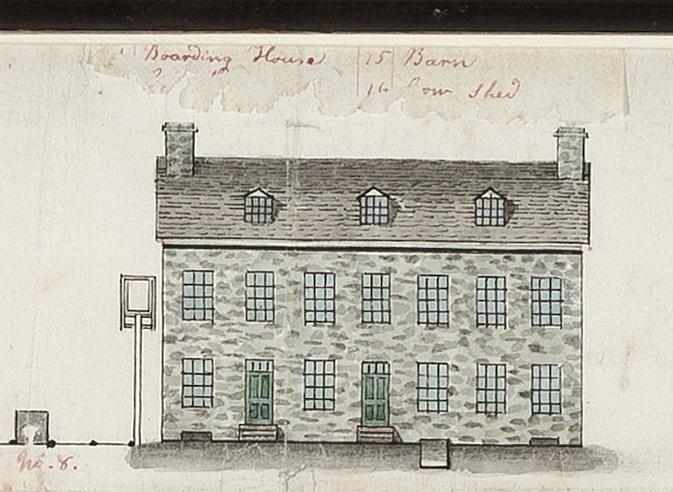 Boarding House 15 Barn
16 Cow Shed
No. 8.